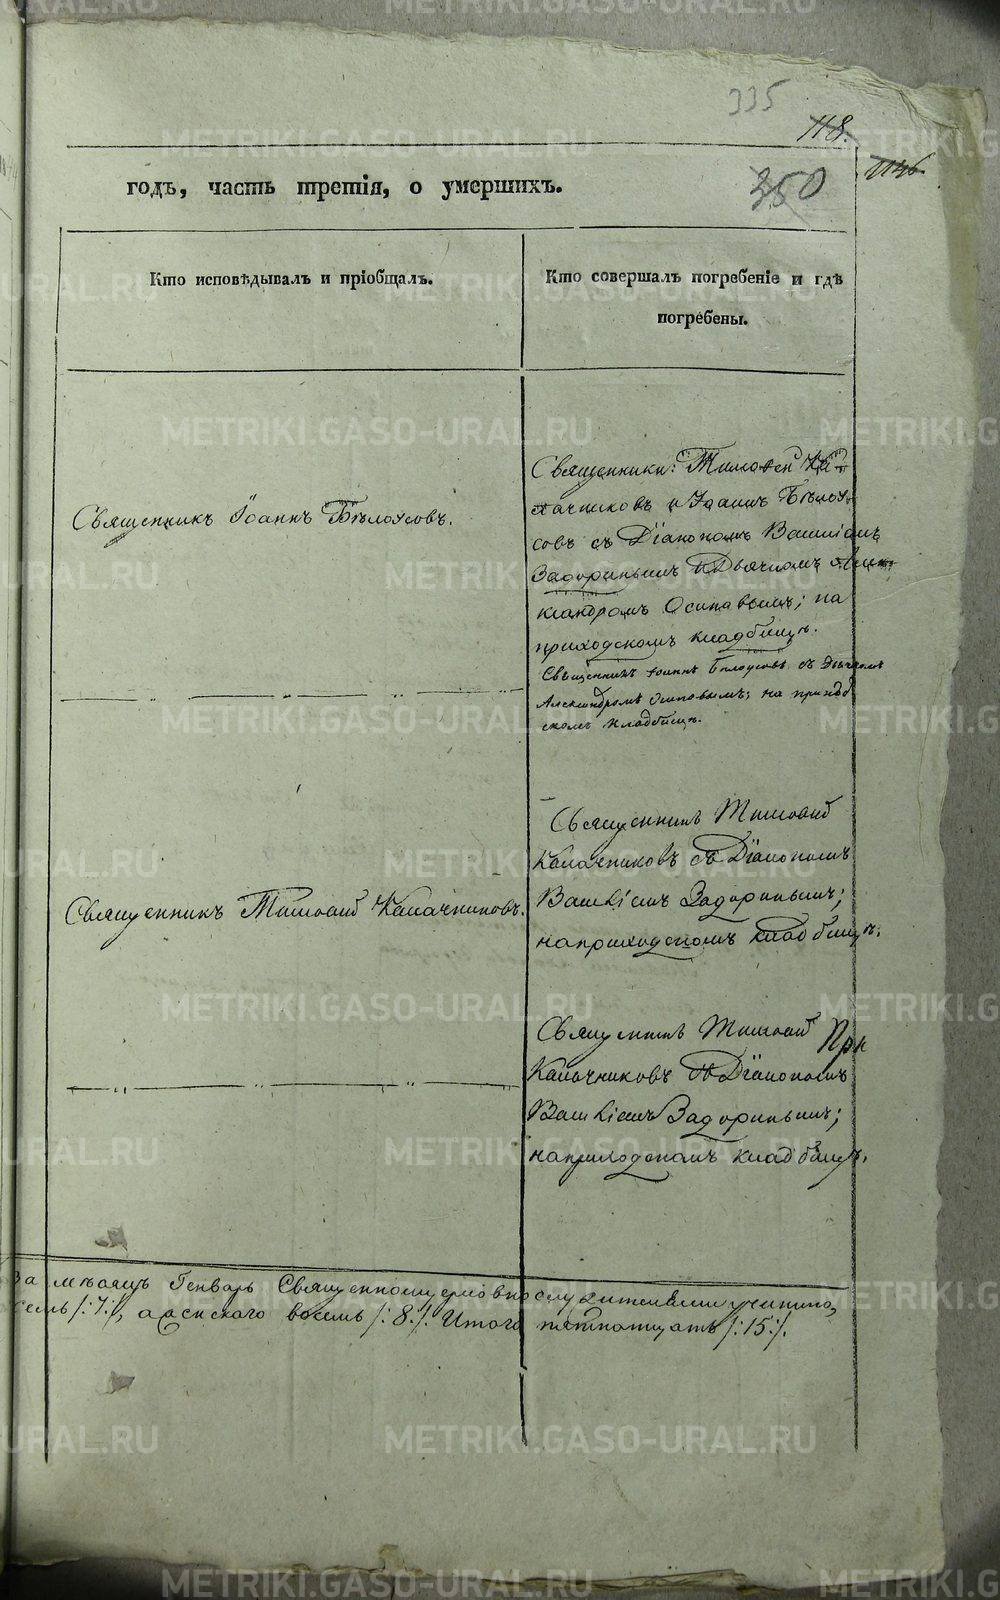 335
118.
годъ, часть третія, о умершихъ.
350
Кто исповѣдывалъ и пріобщалъ.
Кто совершалъ погребеніе и гдѣ
погребены.
Священники: Тимофей Ка-
лачниковъ и Іоаннъ Бѣлоу-
совъ съ Діакономъ Василіемъ
Задоринымъ и Дьячкомъ Алек-
сандромъ Осиповымъ; на
приходскомъ кладбищѣ.
Священникъ Іоаннъ Бѣлоусовъ.
Священникъ Іоаннъ Бѣлоусовъ съ Дьячкомъ
Александромъ Осиповымъ; на приход
скомъ кладбищѣ.
Священникъ Тимофей
Калачниковъ съ Діакономъ
Василіемъ Задоринымъ;
на приходскомъ кладбищѣ.
Священникъ Тимофей Калачниковъ.
Священникъ Тимофей
Калачниковъ съ Діакономъ
Василіемъ Задоринымъ;
на приходскомъ кладбищѣ.
При
За мѣсяцъ Генварь Священноцерковнослужителями учинено,
семь /:7:/, а женскаго восемь /:8:/. Итого пятнатцать /:15:/.
METRIKI.GASO-URAL.RU